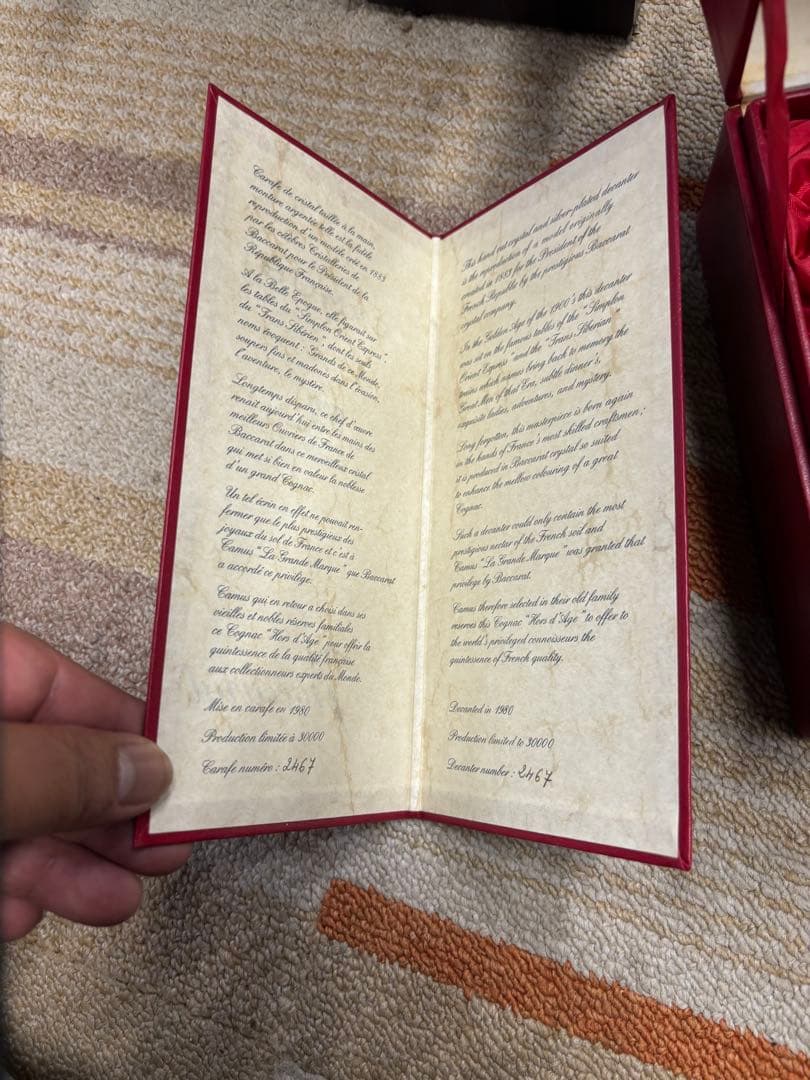 Carafe de cristal taillée à la main,
monture argentée telle est la fidèle
reproduction d'un modèle créé en 1883
par les célèbres Cristalleries de
Baccarat pour le Président de la
République Française.
A la Belle Epoque, elle figurait sur
les tables du "Simplon Orient Express",
du "Trans Sibérien", dont les seuls
noms évoquent : Grands de ce Monde,
soupers fins et madones dans l'évasion,
l'aventure, le mystère.
Longtemps disparu, ce chef d'œuvre
renait aujourd'hui entre les mains des
meilleurs Ouvriers de France de
Baccarat dans ce merveilleux cristal
qui met si bien en valeur la noblesse
d'un grand Cognac.
Un tel écrin en effet ne pouvait ren-
fermer que le plus prestigieux des
joyaux du sol de France et c'est à
Camus "La Grande Marque" que Baccarat
a accordé ce privilège.
Camus qui en retour a choisi dans ses
vieilles et nobles réserves familiales
ce Cognac "Hors d'Age" pour offrir la
quintessence de la qualité française
aux collectionneurs experts du Monde.
Mise en carafe en 1980
Production limitée à 30000
Carafe numéro : 2467
This hand cut crystal and silver-plated decanter
is the reproduction of a model originally
created in 1883 for the President of the
French Republic by the prestigious Baccarat
crystal company.
In the Golden Age of the 1900's this decanter
was set on the famous tables of the "Simplon
Orient Express" and the "Trans Siberian"
trains which names bring back to memory the
Great Men of that Era, subtle dinner's,
exquisite ladies, adventures, and mystery.
Long forgotten, this masterpiece is born again
in the hands of France's most skilled craftsmen ;
it is produced in Baccarat crystal so suited
to enhance the mellow colouring of a great
Cognac.
Such a decanter could only contain the most
prestigious nectar of the French soil and
Camus "La Grande Marque" was granted that
privilege by Baccarat.
Camus therefore selected in their old family
reserves this Cognac "Hors d'Age" to offer to
the world's privileged connoisseurs the
quintessence of French quality.
Decanted in 1980
Production limited to 30000
Decanter number : 2467